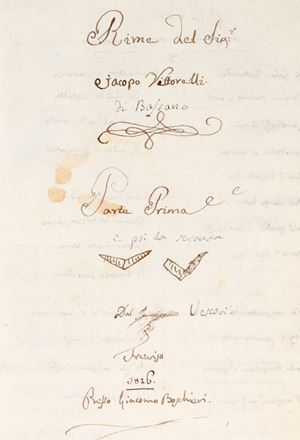 Rime del Sigr
Jacopo Vittorelli
di Bassano
Parte Prima
e poi la seconda
Dal Vescovi
Treviso
1826.
Presso Giacomo